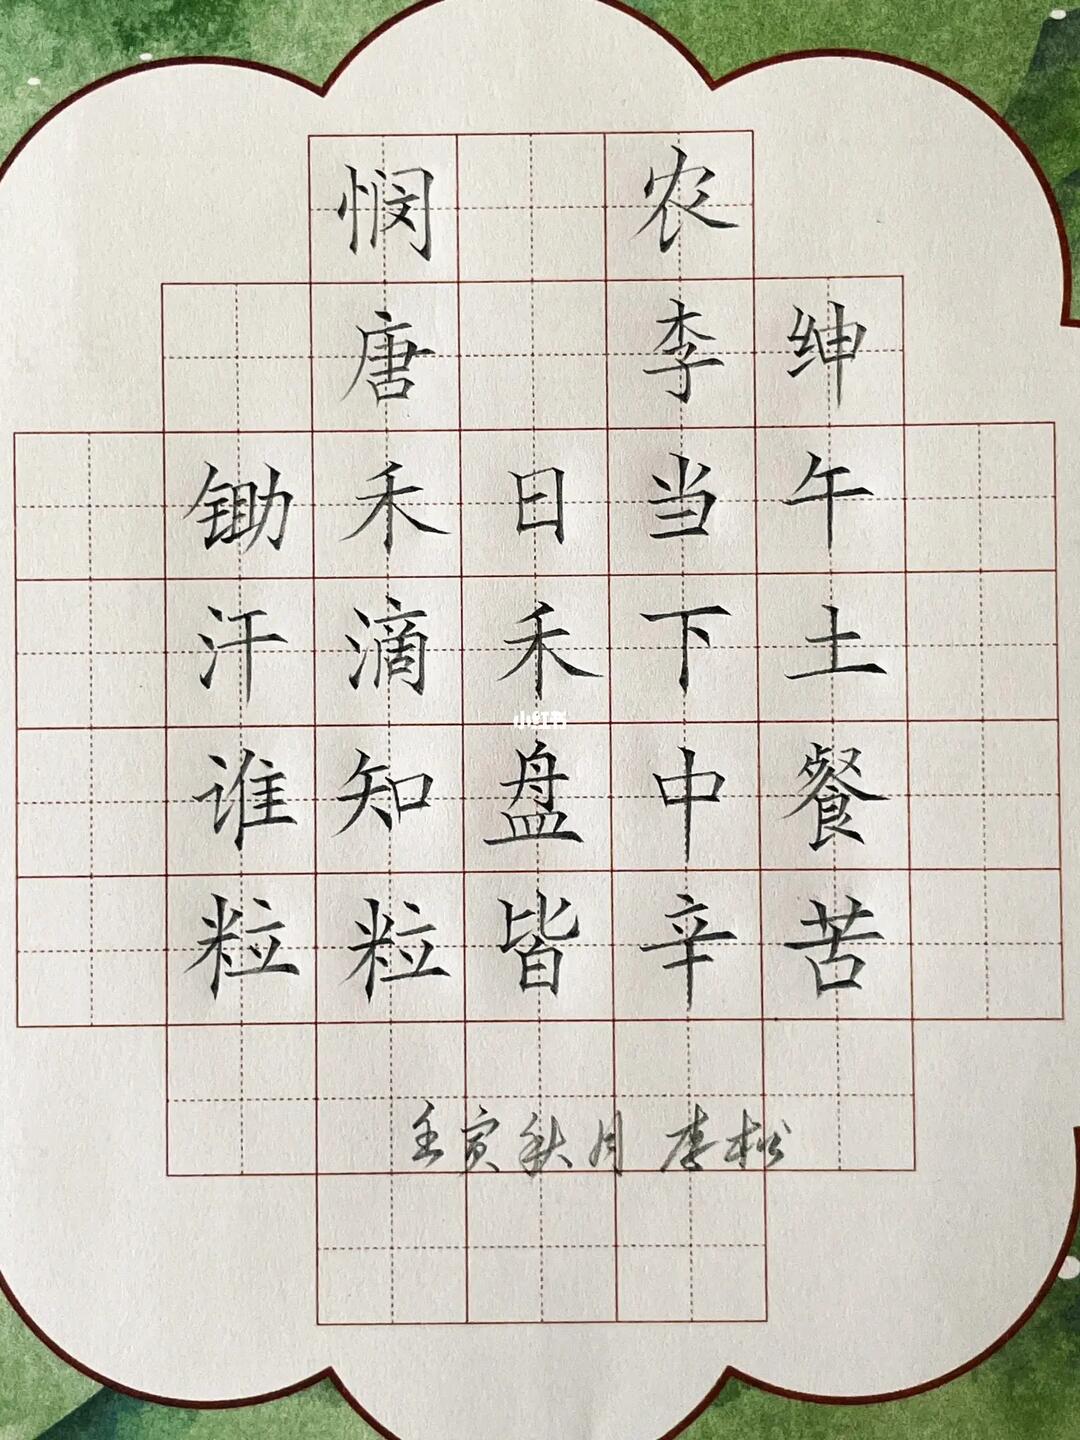 悯农
唐 李绅
锄禾日当午
汗滴禾下土
谁知盘中餐
粒粒皆辛苦
壬寅秋月 李松
小红书